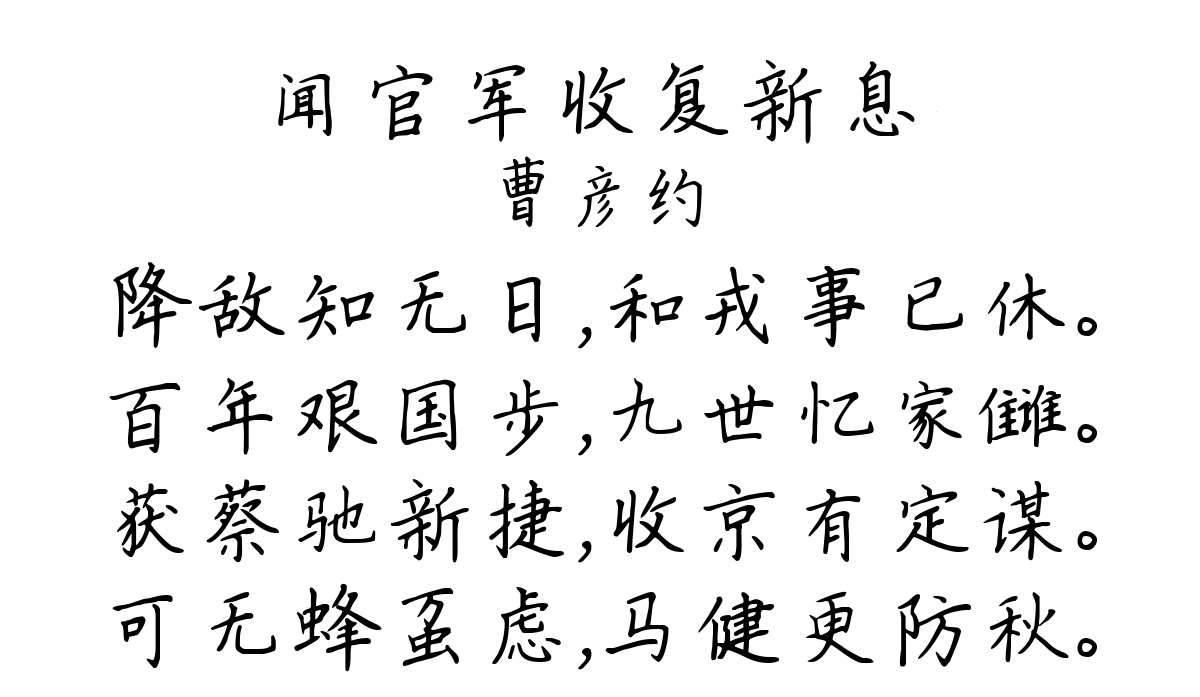 闻官军收复新息
曹彦约
降敌知无日,和戎事已休。
百年艰国步,九世忆家雠。
获蔡驰新捷,收京有定谋。
可无蜂虿虑,马健更防秋。